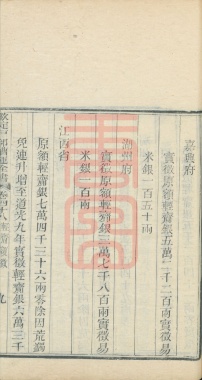 嘉興府
實徵原額輕齎銀五萬二千二百兩實徵易
米銀一百五十兩
湖州府
實徵原額輕齎銀三萬七千八百兩實徵易
米銀一百兩
江西省
原額輕齎銀七萬四千三十六兩零除因荒蠲
免連升增至道光九年實徵輕齎銀六萬三千